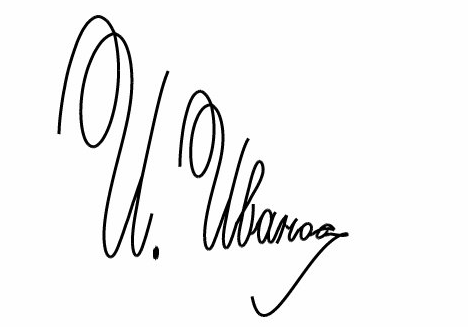 И. Иванов